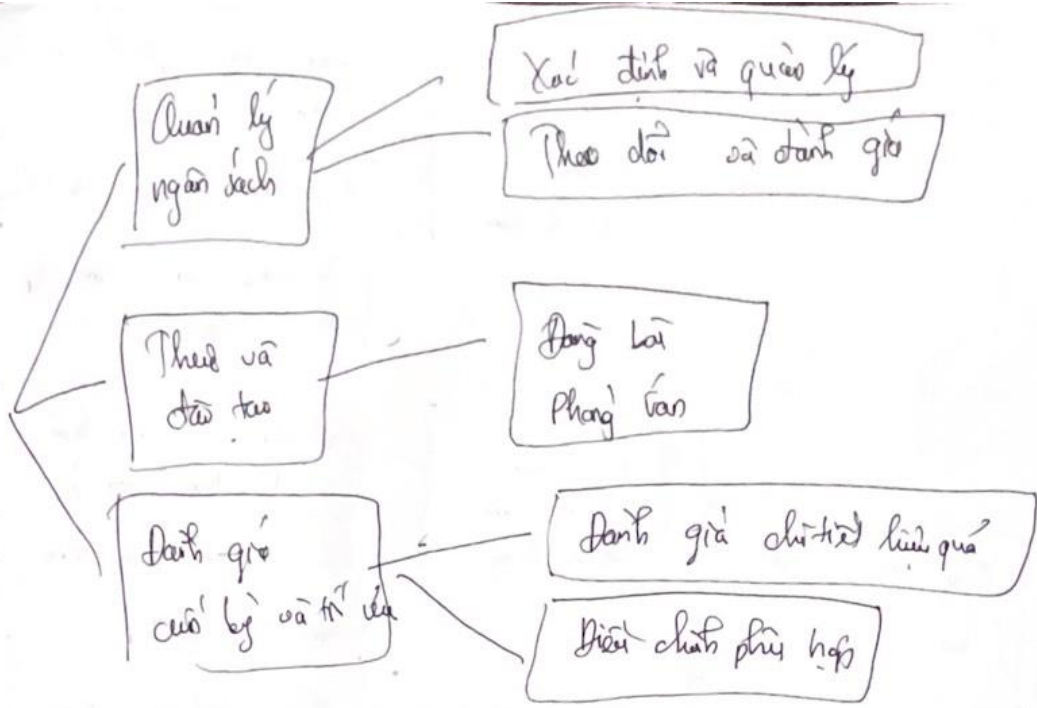 Quản lý
ngân sách
Xác định và quản lý
Theo dõi và đánh giá
Thuê và
đào tạo
Đăng bài
Phỏng vấn
Đánh giá
cuối kỳ và tối ưu
Đánh giá chi tiết hiệu quả
Điều chỉnh phù hợp